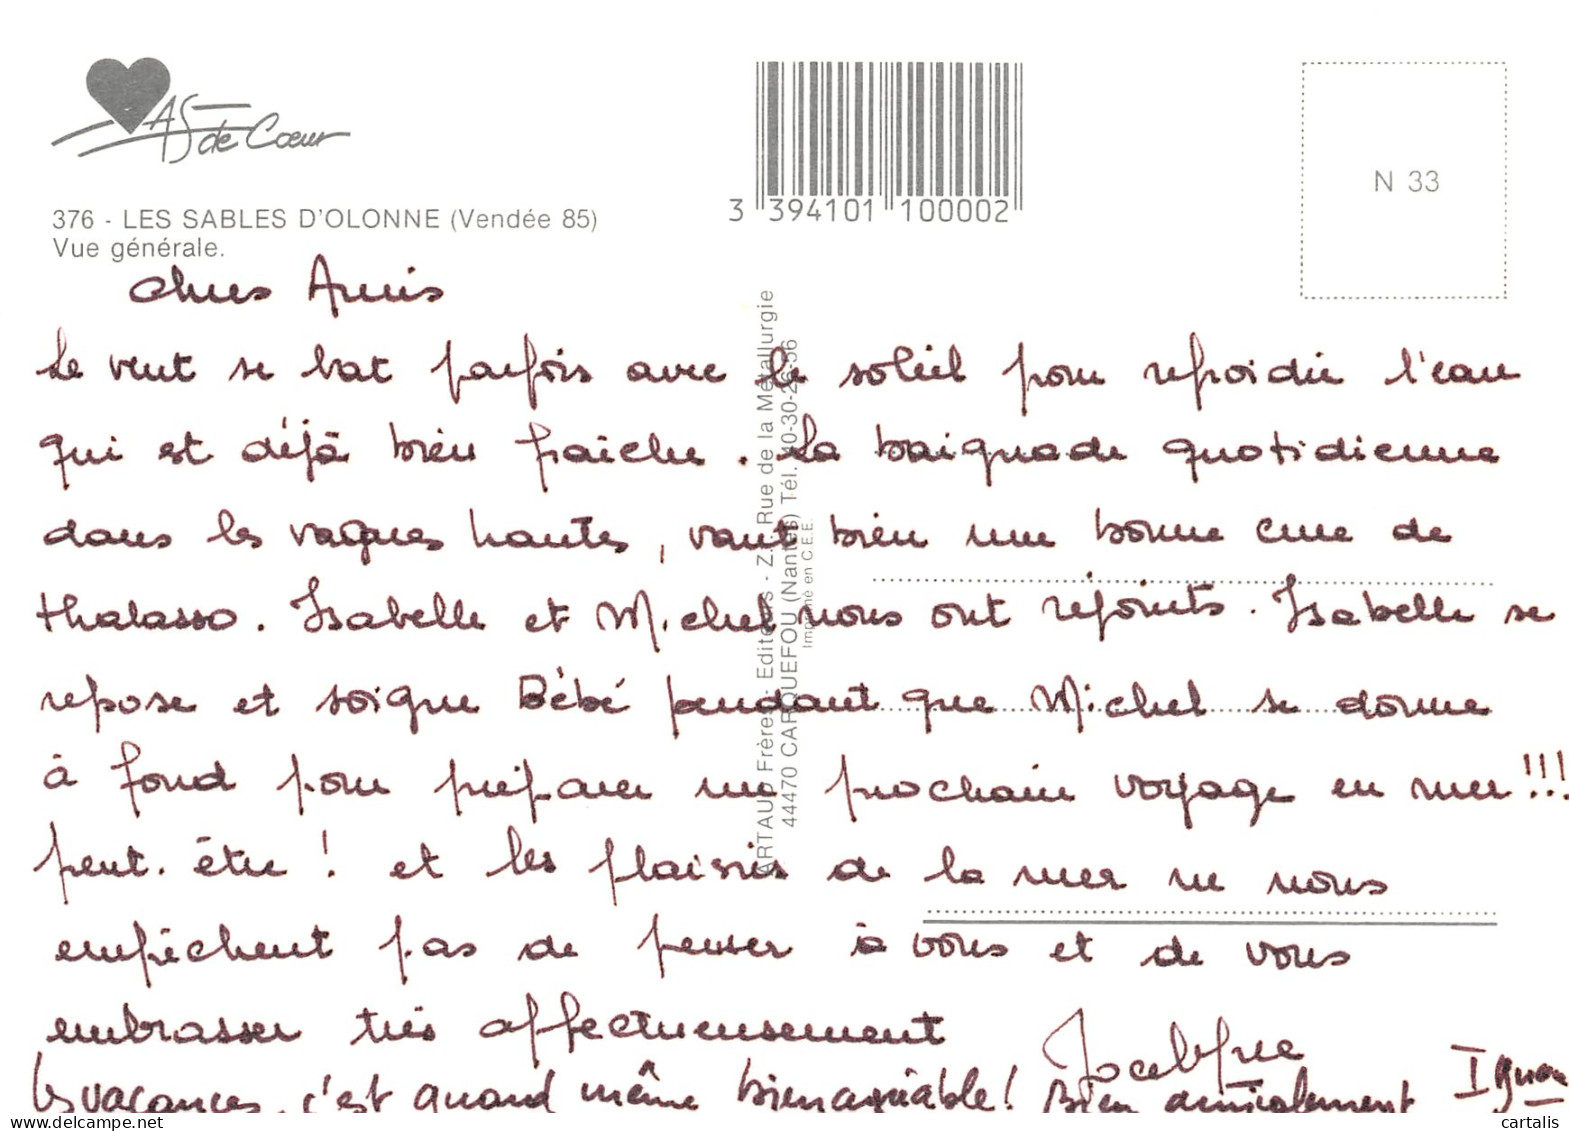 As de Cœur
376 - LES SABLES D'OLONNE (Vendée 85)
Vue générale.
3 394101 100002
N 33
ARTAUD Frères - Editeurs - Z.I. Rue de la Métallurgie
44470 CARQUEFOU (Nantes) Tél. 40-30-26-56
Imprimé en C.E.E.
Chers Amis
Le vent se bat parfois avec le soleil pour refroidir l'eau
qui est déjà bien fraîche. La baignade quotidienne
dans les vagues hautes, vaut bien une bonne cure de
thalasso. Isabelle et Michel nous ont rejoints. Isabelle se
repose et soigne Bébé pendant que Michel se donne
à fond pour préparer un prochain voyage en mer !!!
peut-être ! et les plaisirs de la mer ne nous
empêchent pas de penser à vous et de vous
embrasser très affectueusement
Les vacances, c'est quand même bien agréable ! Bien amicalement
cartalis